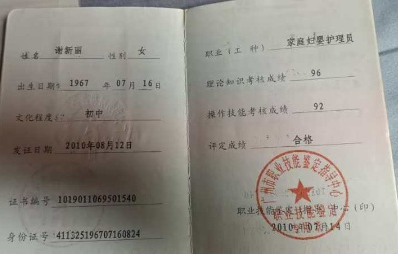 姓名 谢新丽 性别 女
出生日期 1967 年 07 月 16 日
文化程度 初中
发证日期 2010年08月12日
证书编号 1019011069501540
身份证号 411325196707160824
职业(工种) 家庭妇婴护理员
理论知识考核成绩 96
操作技能考核成绩 92
评定成绩 合格
广州市职业技能鉴定指导中心
职业技能鉴定
(印)
2010年07月14日